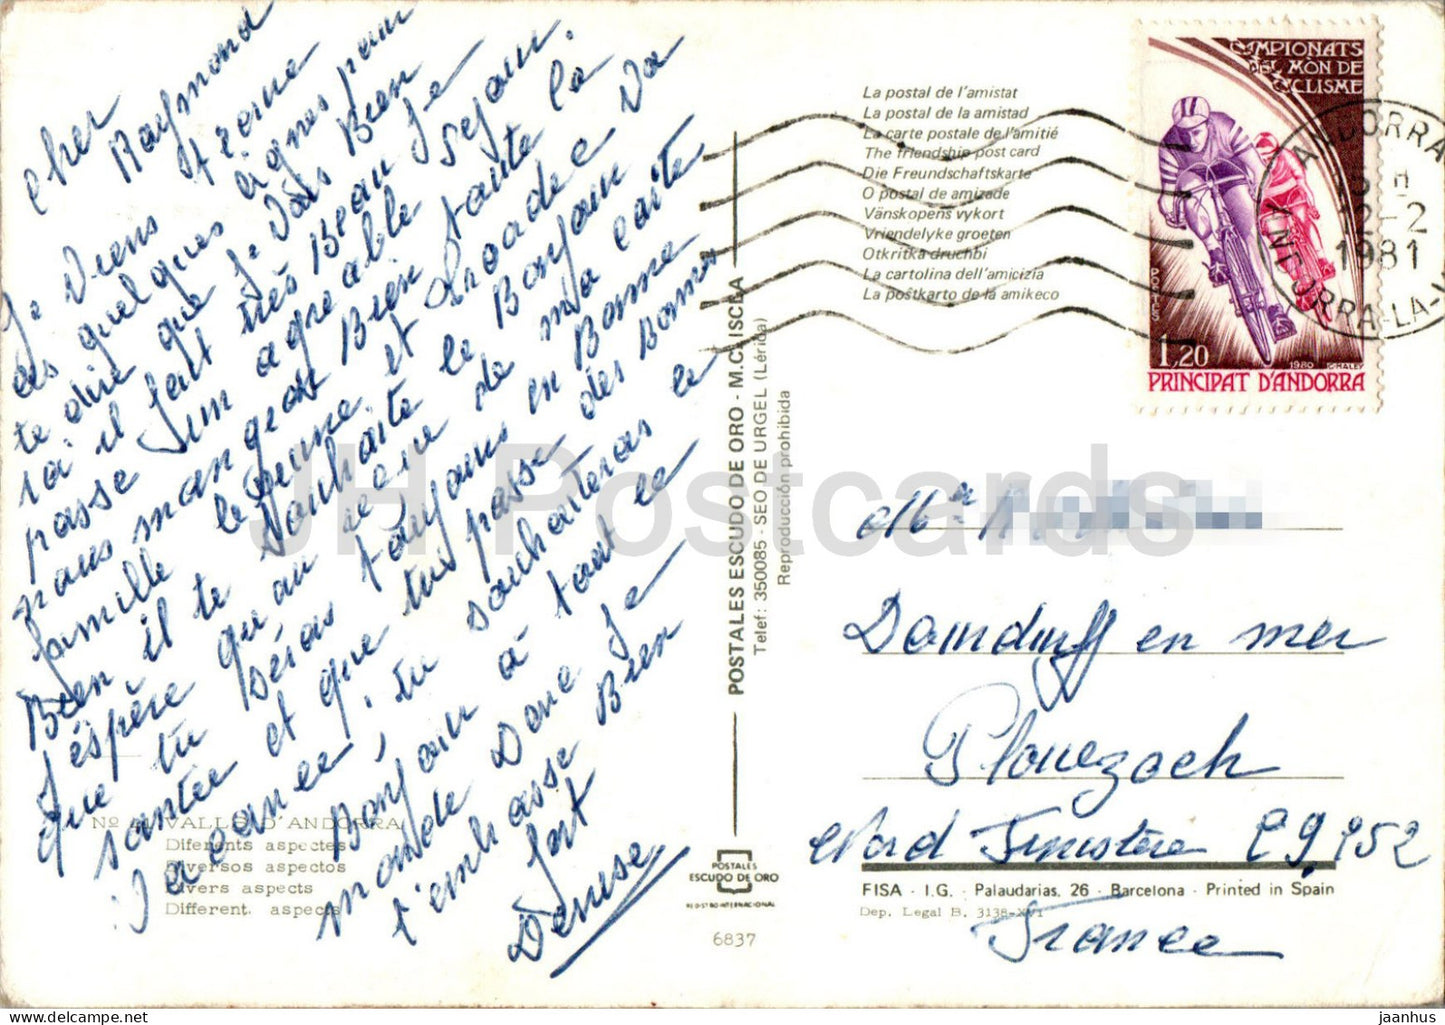 cher Raymond
Irène
Je viens
agnès pour
ces quelques
te dire que je vais Bien
ici il fait très Beau je
passe un agreable sejour.
nous mangeons Bien toute la
famille le jeune et Bien il te souhaite le Bonjour
j'éspère qu'au reçue de ma carte
que tu seras toujours en Bonne
santée et que tu passe des Bonnes
vacances, tu souhaiteras le
Bonjour à tout le
monde Donc je
t'embrasse Bien
fort
Denise
Nº VALLS D'ANDORRA
Diferents aspectes
Diversos aspectos
Divers aspects
Different aspects
POSTALES ESCUDO DE ORO - M.C. ISCLA
Telef: 350085 - SEO DE URGEL (Lérida)
Reproducción prohibida
POSTALES
ESCUDO DE ORO
REGISTRO INTERNACIONAL
6837
La postal de l'amistat
La postal de la amistad
La carte postale de l'amitié
The friendship post card
Die Freundschaftskarte
O postal de amizade
Vänskopens vykort
Vriendelyke groeten
Otkritka druchbi
La cartolina dell'amicizia
La poŝtkarto de la amikeco
CAMPIONATS
DEL MON DE
CICLISME
POSTES
1,20
1980 HALEY
PRINCIPAT D'ANDORRA
ANDORRA
12-2
1981
ANDORRA-LA-V
Mr
Dourduff en mer
Plouezoch
Nord Finistère 29252
France
FISA - I.G. - Palaudarias, 26 - Barcelona - Printed in Spain
Dep. Legal B. 3138-XVI
JH Postcards
jaanhus - delcampe.net